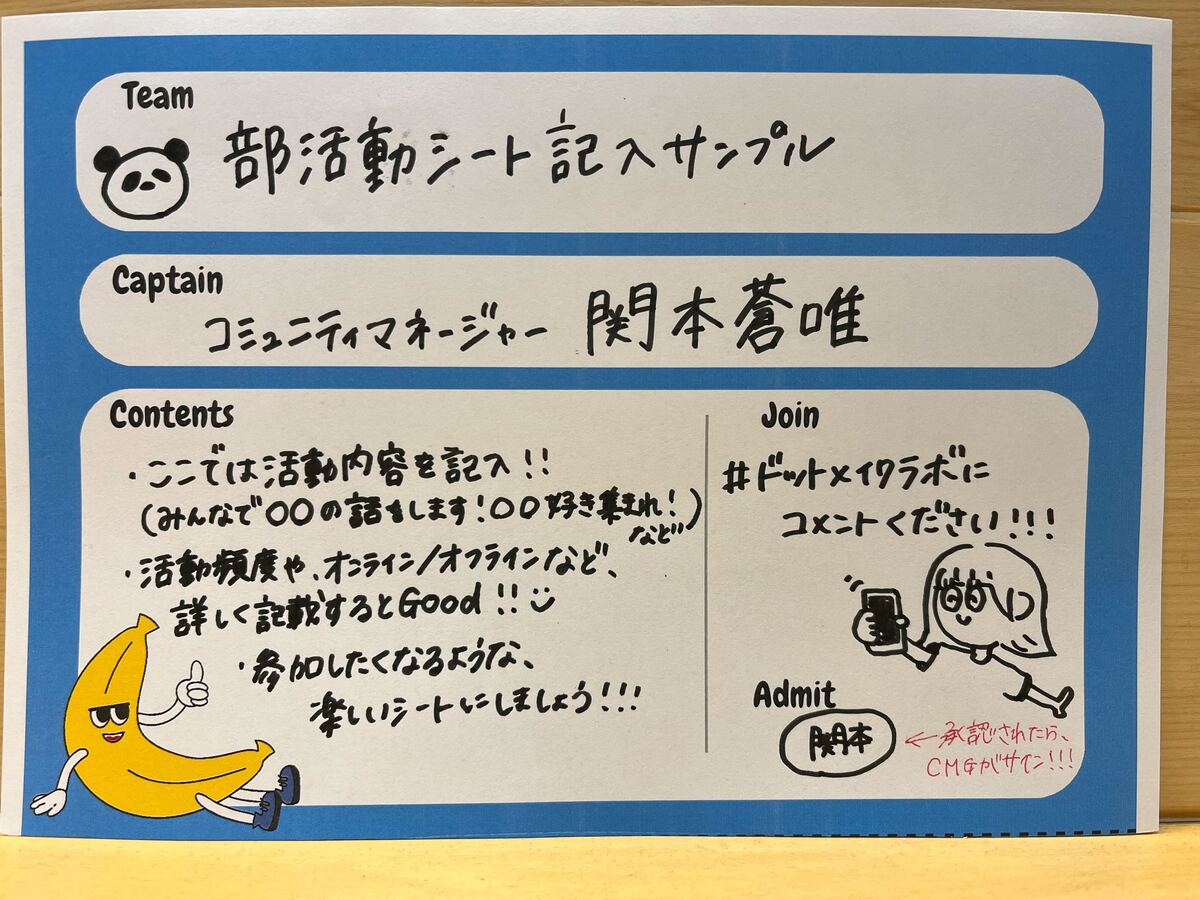 Team
部活動シート記入サンプル
Captain
コミュニティマネージャー 関本蒼唯
Contents
・ここでは活動内容を記入!!
(みんなで〇〇の話をします!〇〇好き集まれ!)
など
・活動頻度や、オンライン/オフラインなど、
詳しく記載するとGood!!
・参加したくなるような、
楽しいシートにしましょう!!!
Join
#ドット×イクラボに
コメントください!!!
Admit
関本
←承認されたら、
CMGがサイン!!!